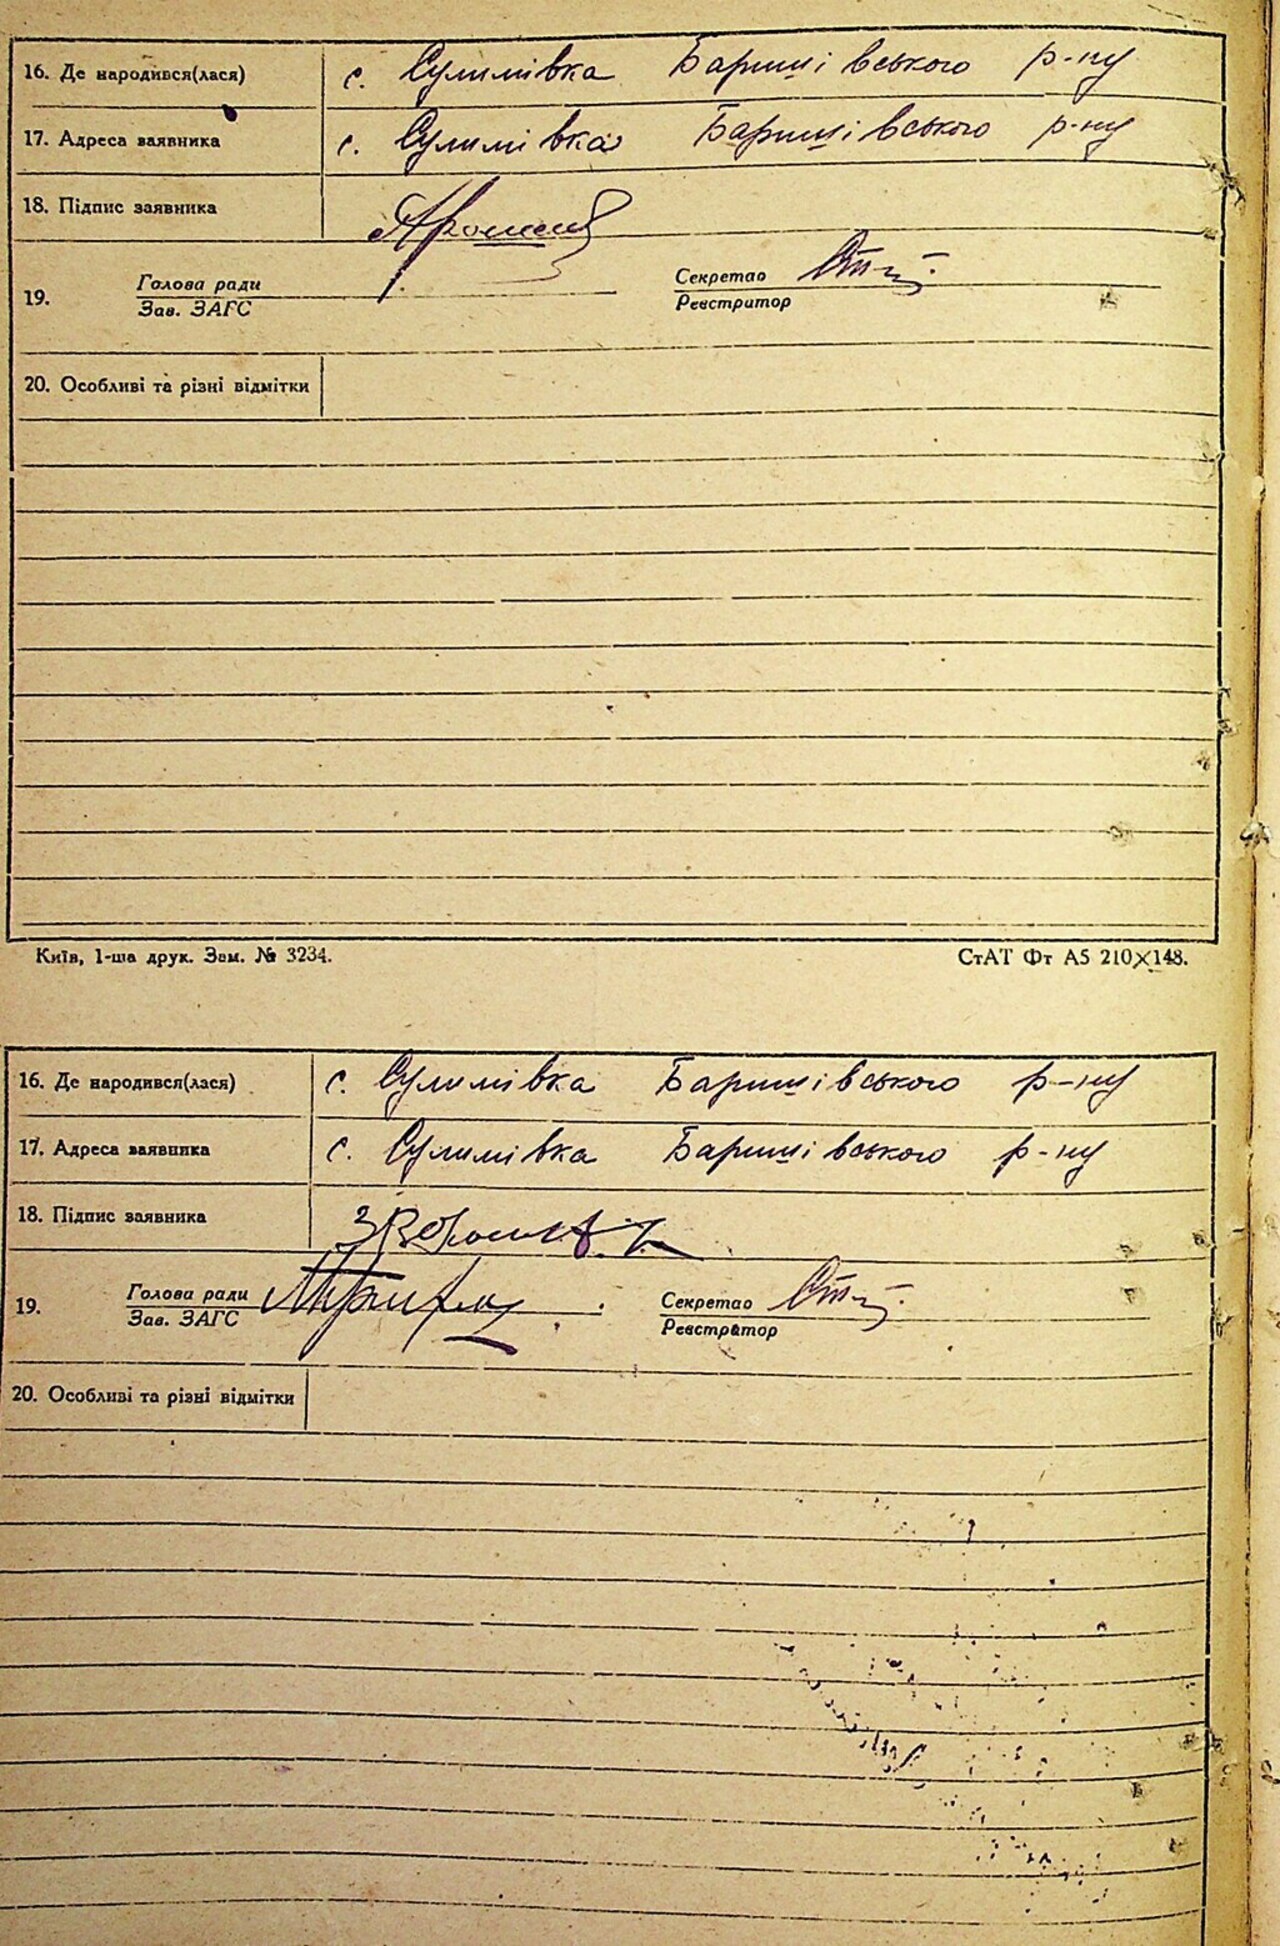 16. Де народився(лася) с. Сулимівка Баришівського р-ну
17. Адреса заявника с. Сулимівка Баришівського р-ну
18. Підпис заявника
19. Голова ради Секретао
Зав. ЗАГС Реєстритор
20. Особливі та різні відмітки
Київ, 1-ша друк. Зам. № 3234. СтАТ Фт А5 210×148.
16. Де народився(лася) с. Сулимівка Баришівського р-ну
17. Адреса заявника с. Сулимівка Баришівського р-ну
18. Підпис заявника
19. Голова ради Секретао
Зав. ЗАГС Реєстратор
20. Особливі та різні відмітки